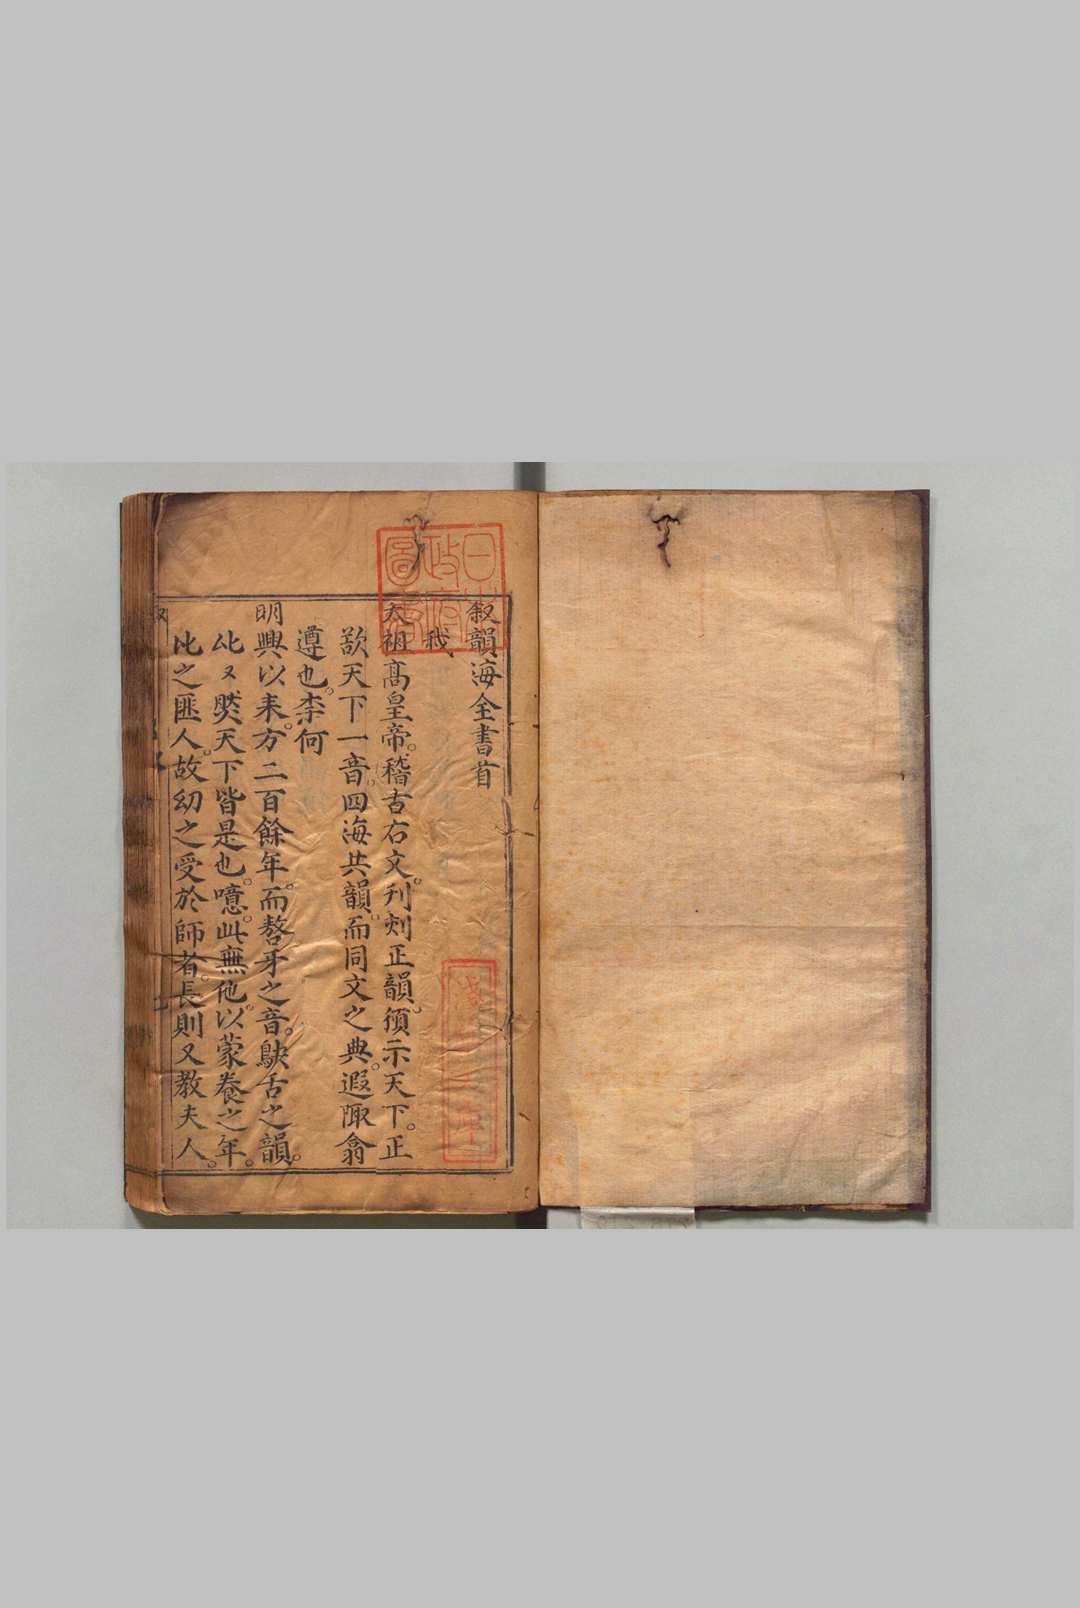 叙韻海全書首
我
太祖高皇帝。稽古右文。刋刻正韻。頒示天下。正
欲天下一音。四海共韻。而同文之典。遐陬翕
遵也。柰何
明興以来。方二百餘年。而謷牙之音。鴃舌之韻。
比又㸃天下皆是也。噫。此無他。以蒙養之年。
比之匪人。故幼之受於師者。長則又教夫人。
日本
政府
圖書
淺草文庫